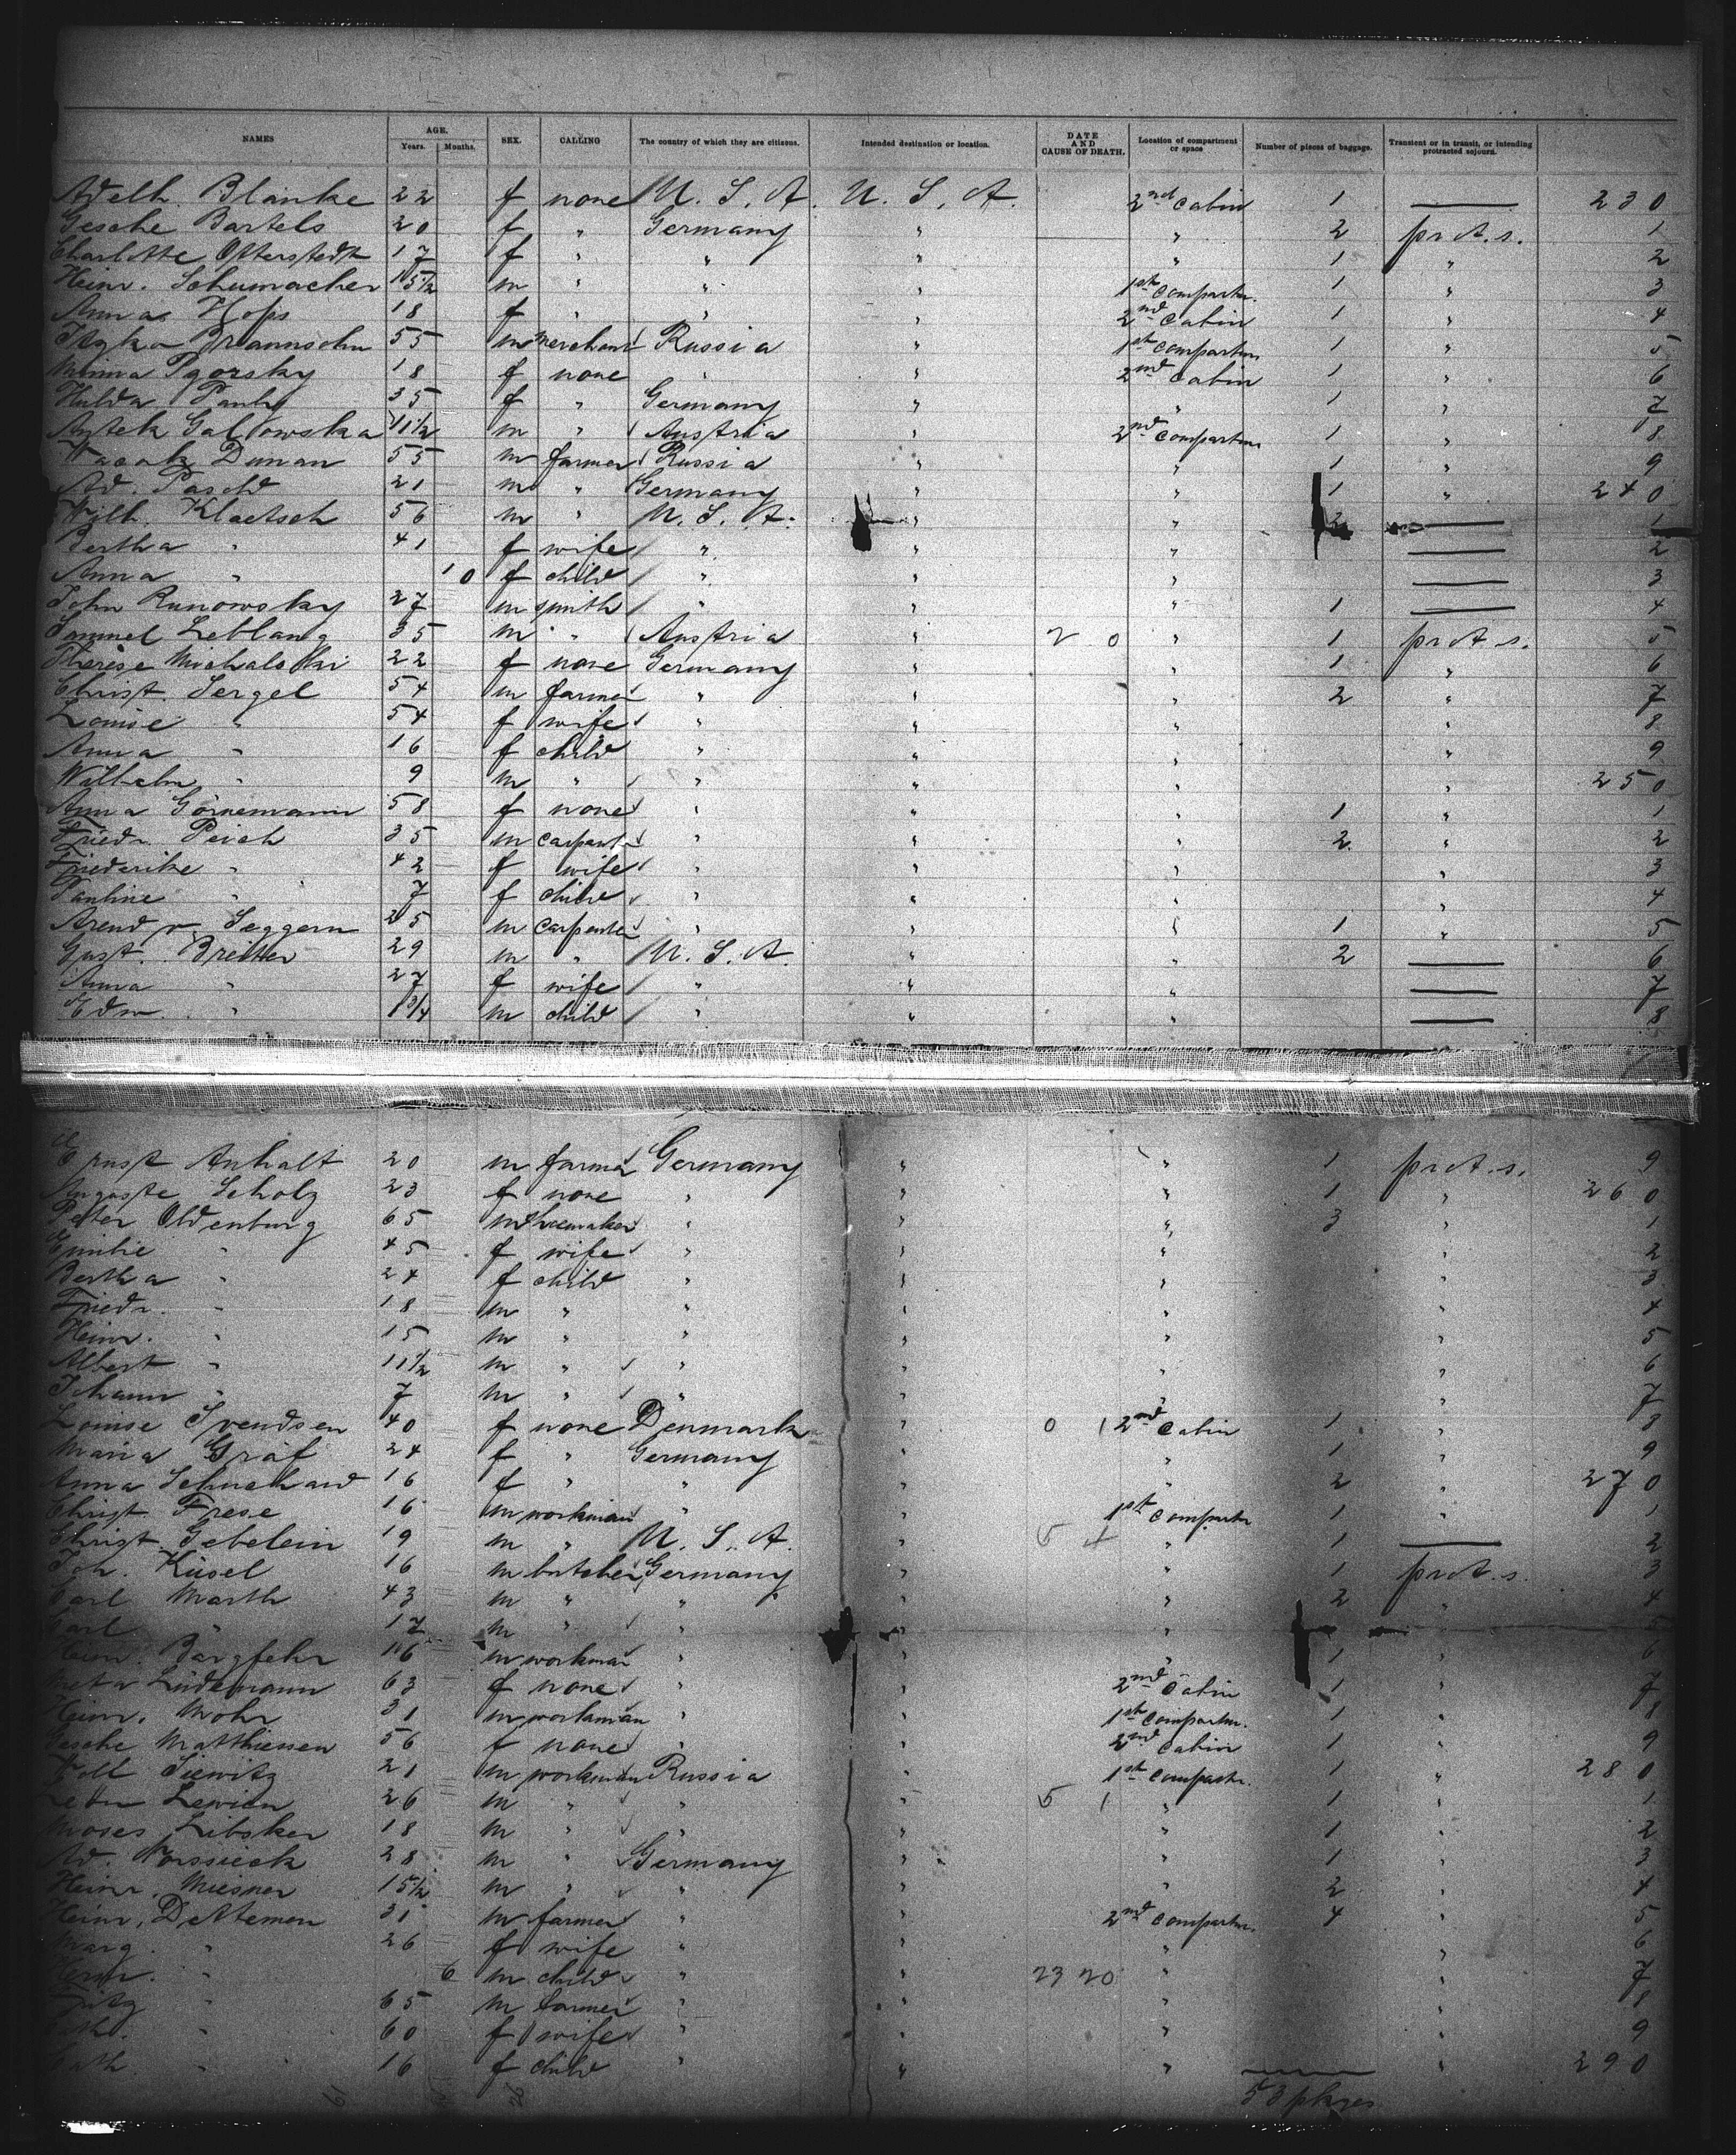 NAMES AGE. Years. Months. SEX. CALLING The country of which they are citizens. Intended destination or location. DATE AND CAUSE OF DEATH. Location of compartment or space Number of pieces of baggage. Transient or in transit, or intending protracted sojourn.
Adelh. Blanke 22 f none U. S. A. U. S. A. 2nd Cabin 1 — 230
Gesche Bartels 20 f " Germany " " 2 prot. s. 1
Charlotte Otterstedt 17 f " " " " 1 " 2
Heinr. Schumacher 15 1/2 m " " " 1st Compartm. 1 " 3
Anna Hops 18 f " " " 2nd Cabin 1 " 4
55 m merchant Russia " 1st Compartm 1 " 5
Minna Pgorsky 18 f none " " 2nd Cabin 1 " 6
Hulda Pauly 35 f " Germany " " 1 " 7
11 1/2 m " Austria " 2nd Compartm 1 " 8
Dunan 55 m farmer Russia " " 1 " 9
Ad. Pasch 21 m " Germany " " 1 " 240
Wilh. Klaetsch 56 m " U. S. A. " " 2 — 1
Bertha " 41 f wife " " " — 2
Anna " 10 f child " " " — 3
John Runowsky 27 m smith " " " 1 — 4
Samuel Leblang 35 m " Austria " 2 0 " 1 prot. s. 5
Therese Michalofski 22 f none Germany " " 1 " 6
Christ. Sergel 54 m farmer " " " 2 " 7
Louise " 54 f wife " " " " 8
Anna " 16 f child " " " " 9
Wilhelm " 9 m " " " " " 250
Anna Görnemann 58 f none " " " 1 " 1
Friedr. Peich 35 m carpenter " " " 2 " 2
Friederike " 42 f wife " " " " 3
Pauline " 7 f child " " " " 4
Arend v. Seggern 25 m carpenter " " " 1 " 5
Gust. Breiter 29 m " U. S. A. " " 2 — 6
Anna " 27 f wife " " " — 7
Edw. " 1 3/4 m child " " " — 8
Ernst Anhalt 20 m farmer Germany " " 1 prot. s. 9
Auguste Scholz 23 f none " " " 1 " 260
Peter Oldenburg 65 m shoemaker " " " 3 " 1
Emilie " 45 f wife " " " " 2
Bertha " 24 f child " " " " 3
Friedr. " 18 m " " " " " 4
Heinr. " 15 m " " " " " 5
Albert " 11 1/2 m " " " " " 6
Johann " 7 m " " " " " 7
Louise Svendsen 40 f none Denmark " 0 1 2nd Cabin 1 " 8
Maria Gräf 24 f " Germany " " 1 " 9
Anna Schuchard 16 f " " " " 2 " 270
Christ. Frese 16 m workman " " 1st Compartm 1 " 1
Christ. Gebelein 19 m " U. S. A. " 5 4 " 1 — 2
Joh. Küsel 16 m butcher Germany " " 1 prot. s. 3
Carl Marth 43 m " " " " 2 " 4
Carl " 17 m " " " " 5
Heinr. Bargfehr 16 m workman " " " 1 " 6
Meta Lüdemann 63 f none " " 2nd Cabin 1 " 7
Heinr. Mohr 31 m workman " " 1st Compartm. 1 " 8
Gesche Matthiessen 56 f none " " 2nd Cabin 1 " 9
Siewitz 21 m workman Russia " 1st Compartm. 1 " 280
Lewin 26 m " " " 5 1 " 1 " 1
Moses Libsker 18 m " " " " 1 " 2
Ad. Vorssieck 28 m " Germany " " 1 " 3
Heinr. Miesner 15 1/2 m " " " " 2 " 4
Heinr. Dettemen 31 m farmer " " 2nd Compartm. 4 " 5
Marg. " 26 f wife " " " " 6
Heinr. " 6 m child " " 23 20 " " 7
Fritz " 65 m farmer " " " " 8
Cath. " 60 f wife " " " " 9
Cath. " 16 f child " " " " 290
53 pkges